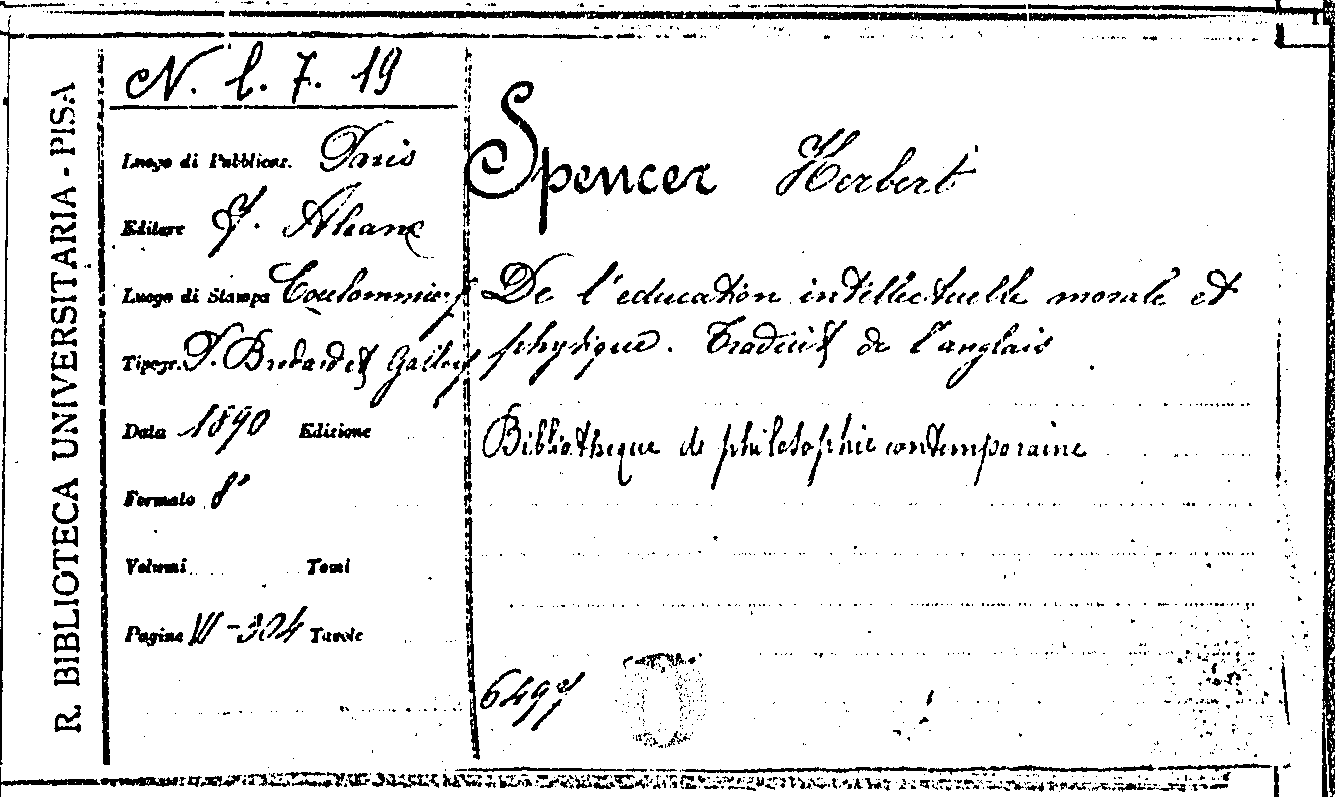 R. BIBLIOTECA UNIVERSITARIA - PISA
N. l. 7. 19
Luogo di Pubblicaz. Paris
Editore F. Alcan
Luogo di Stampa Coulommiers
Tipogr. P. Brodard et Gallois
Data 1890 Edizione
Formato 8°
Volumi Tomi
Pagine VI-304 Tavole
Spencer Herbert
De l'education intellectuelle morale et
physique. Traduit de l'anglais
Bibliotheque de philosophie contemporaine
6497